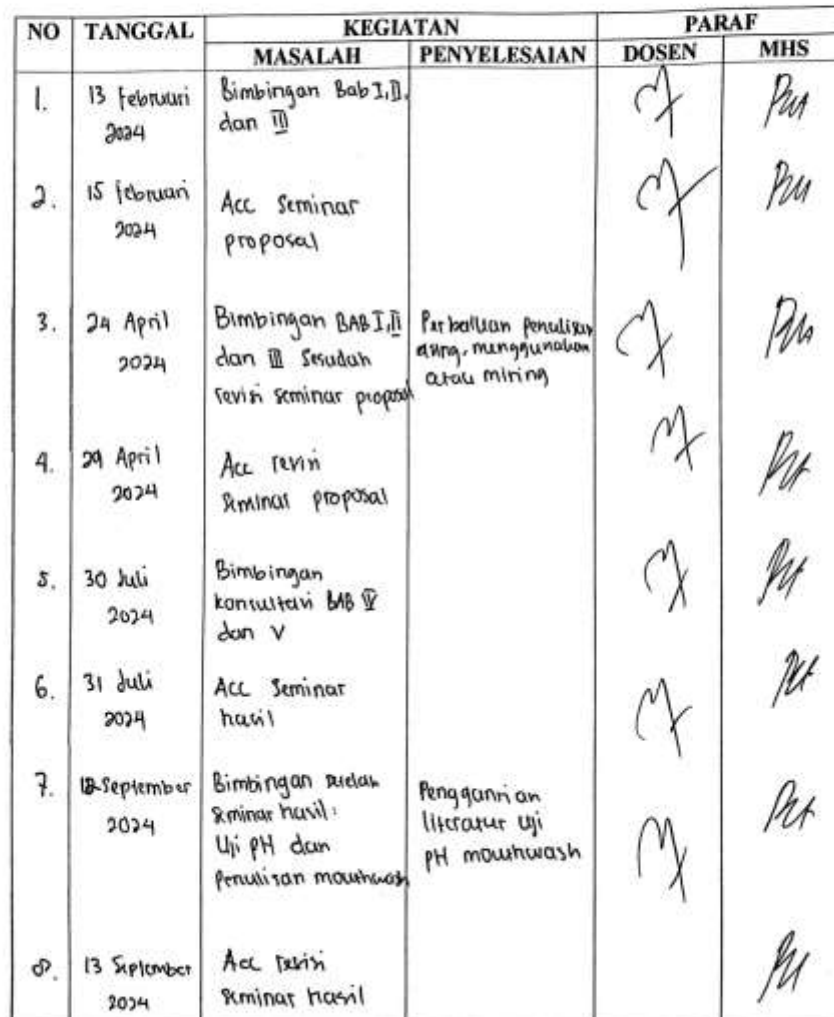 NO TANGGAL KEGIATAN PARAF
MASALAH PENYELESAIAN DOSEN MHS
1. 13 Februari 2024
Bimbingan Bab I, II,
dan III
2. 15 Februari 2024
Acc Seminar
proposal
3. 24 April 2024
Bimbingan BAB I, II
dan III Sesudah
revisi seminar proposal
Perbaikan penulisan
asing, menggunakan
atau miring
4. 29 April 2024
Acc revisi
seminar proposal
5. 30 Juli 2024
Bimbingan
konsultasi BAB IV
dan V
6. 31 Juli 2024
Acc Seminar
hasil
7. 12 September 2024
Bimbingan setelah
seminar hasil:
Uji pH dan
penulisan mouthwash
Penggantian
literatur uji
pH mouthwash
8. 13 September 2024
Acc revisi
seminar hasil